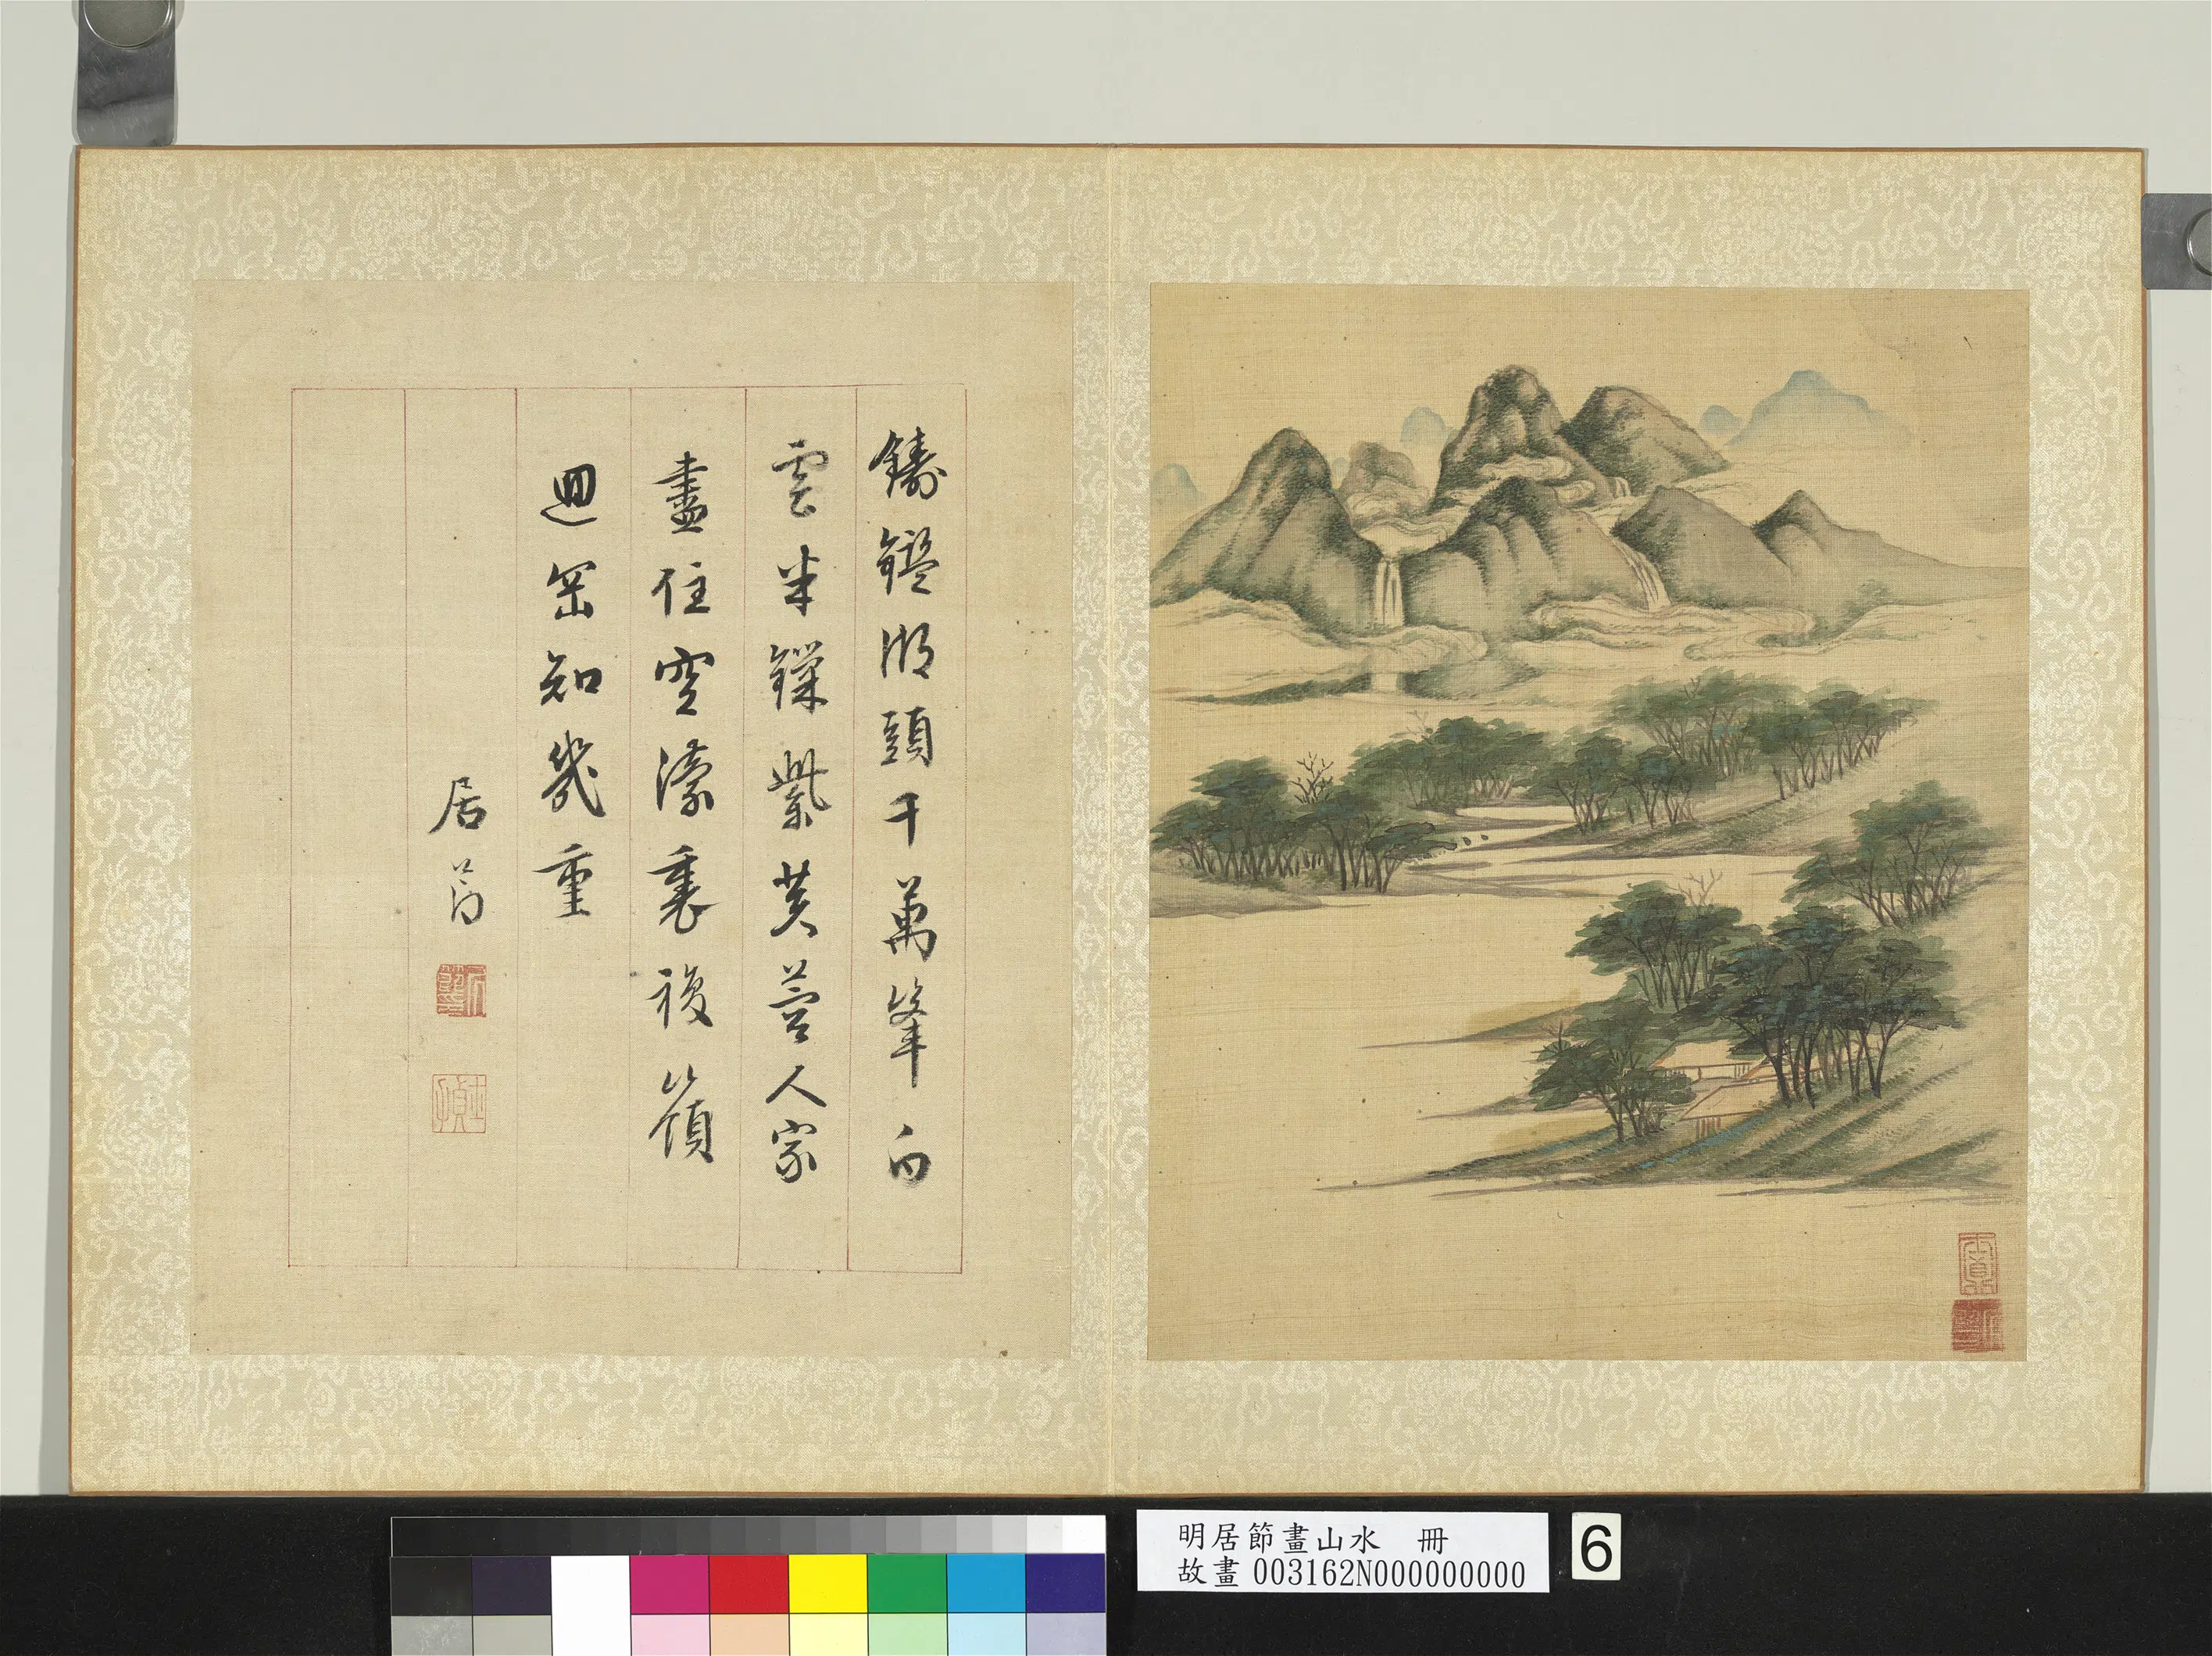 鑄鑑湖頭千萬峯白
雲半鏁紫芙蓉人家
盡住空濛裏複嶺
迴岡知幾重
居節
明居節畫山水 冊
故畫003162N000000000
6